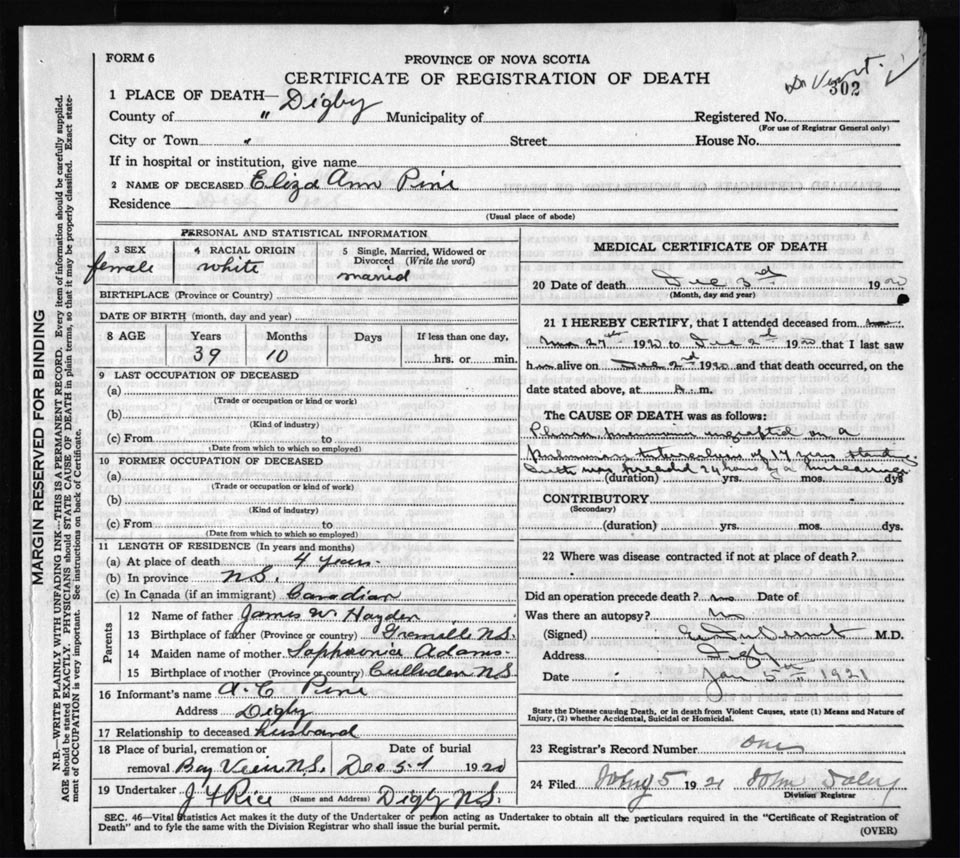 FORM 6
PROVINCE OF NOVA SCOTIA
CERTIFICATE OF REGISTRATION OF DEATH
302
1 PLACE OF DEATH— Digby
County of " Municipality of Registered No.
(For use of Registrar General only)
City or Town " Street House No.
If in hospital or institution, give name
2 NAME OF DECEASED Eliza Ann
Residence
(Usual place of abode)
PERSONAL AND STATISTICAL INFORMATION
3 SEX female
4 RACIAL ORIGIN white
5 Single, Married, Widowed or Divorced (Write the word)
BIRTHPLACE (Province or Country)
DATE OF BIRTH (month, day and year)
8 AGE Years Months Days If less than one day,
39 10 hrs. or min.
9 LAST OCCUPATION OF DECEASED
(a)
(Trade or occupation or kind or work)
(b)
(Kind of industry)
(c) From to
(Date from which to which so employed)
10 FORMER OCCUPATION OF DECEASED
(a)
(Trade or occupation or kind of work)
(b)
(Kind of industry)
(c) From to
(Date from which to which so employed)
11 LENGTH OF RESIDENCE (In years and months)
(a) At place of death 4 years.
(b) In province N.S.
(c) In Canada (if an immigrant) Canadian
Parents
12 Name of father James W Hayden
13 Birthplace of father (Province or country) N.S.
14 Maiden name of mother Adams
15 Birthplace of mother (Province or country) Culloden N.S
16 Informant's name A. C
Address Digby
17 Relationship to deceased husband
18 Place of burial, cremation or Date of burial
removal Bay View N.S. Dec 5th 1920
19 Undertaker J F Rice (Name and Address) Digby N.S.
MEDICAL CERTIFICATE OF DEATH
20 Date of death Dec 3rd 1920
(Month, day and year)
21 I HEREBY CERTIFY, that I attended deceased from
27th 1920 to Dec 2nd 1920 that I last saw
h alive on Dec 2nd 1920 and that death occurred, on the
date stated above, at A. m.
The CAUSE OF DEATH was as follows:
on a
tuberculosis of 17 years
24 hours by a
(duration) yrs. mos. dys
CONTRIBUTORY
(Secondary)
(duration) yrs. mos. dys.
22 Where was disease contracted if not at place of death?
Did an operation precede death? no Date of
Was there an autopsy? no
(Signed) M.D.
Address Digby
Date Jan 5th 1921
State the Disease causing Death, or in death from Violent Causes, state (1) Means and Nature of
Injury, (2) whether Accidental, Suicidal or Homicidal.
23 Registrar's Record Number one
24 Filed 5 1921 John Daley
Division Registrar
SEC. 46—Vital Statistics Act makes it the duty of the Undertaker or person acting as Undertaker to obtain all the particulars required in the "Certificate of Registration of
Death" and to fyle the same with the Division Registrar who shall issue the burial permit.
(OVER)
MARGIN RESERVED FOR BINDING
N.B.—WRITE PLAINLY WITH UNFADING INK—THIS IS A PERMANENT RECORD. Every item of information should be carefully supplied.
AGE should be stated EXACTLY. PHYSICIANS should STATE CAUSE OF DEATH in plain terms, so that it may be properly classified. Exact state-
ment of OCCUPATION is very important. See instructions on back of Certificate.